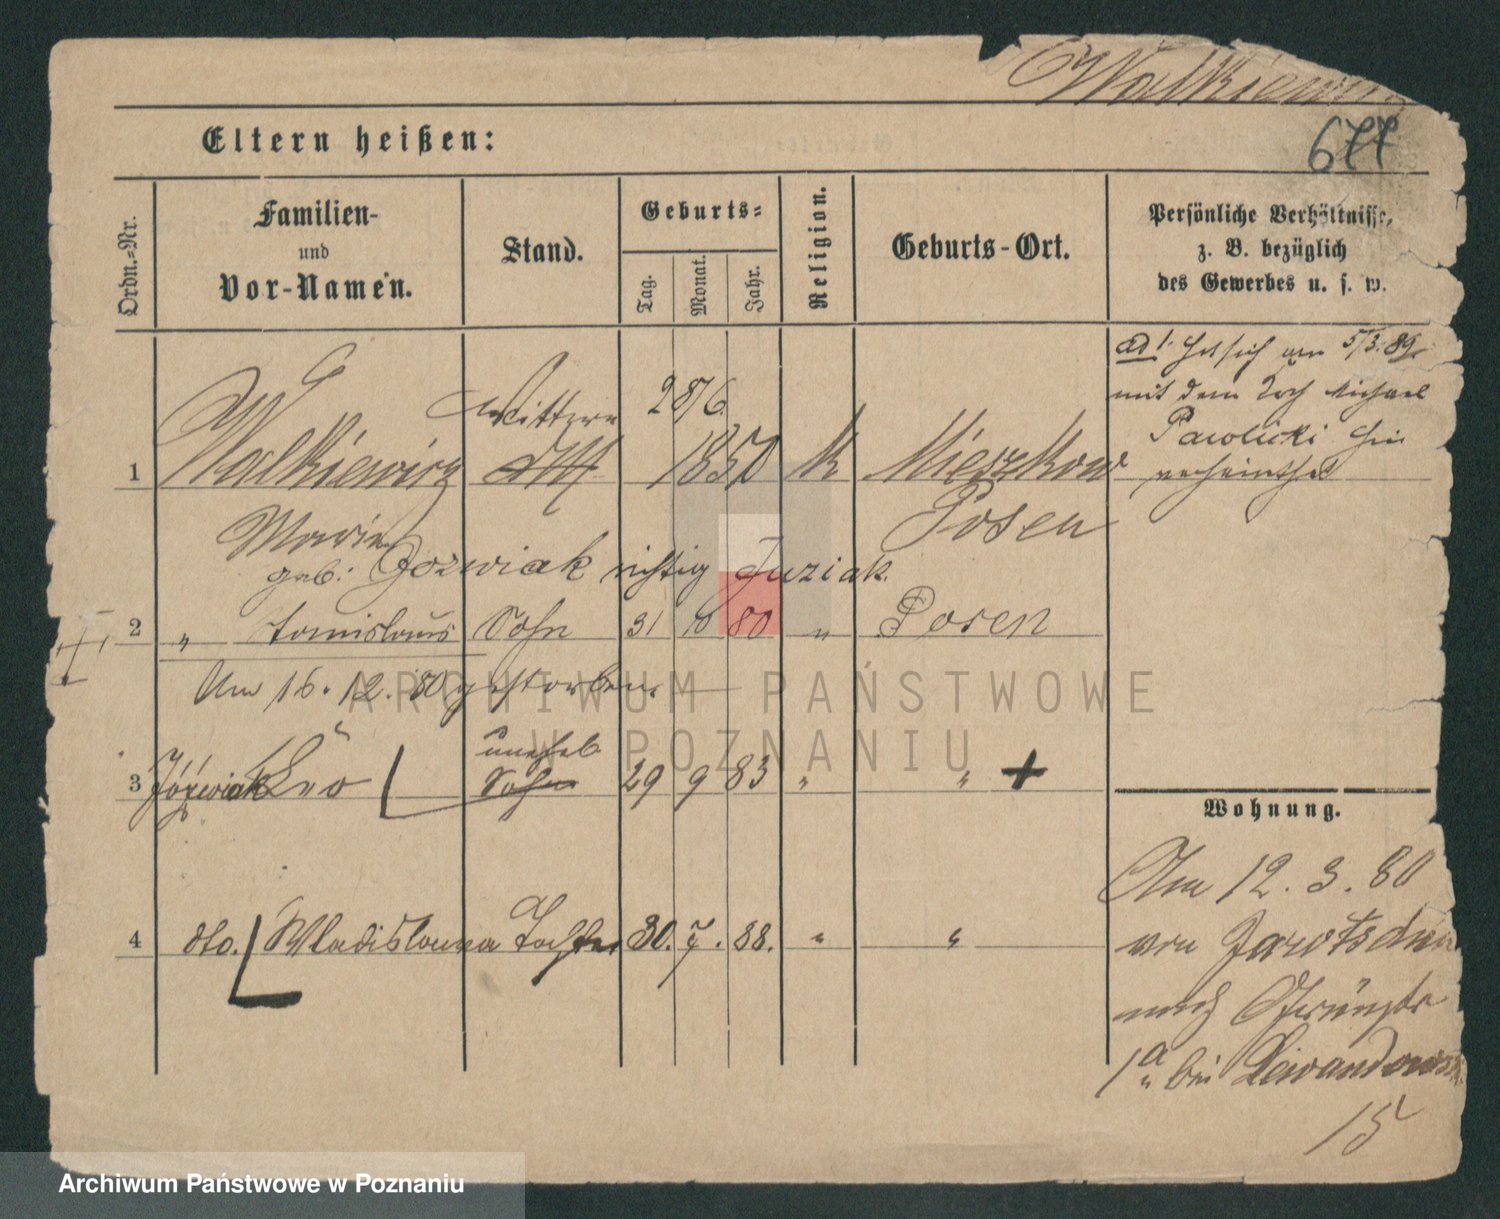 Walkiewicz
677
Eltern heißen:
Ordn.-Nr.
Familien-
und
Vor-Namen.
Stand.
Geburts-
Tag.
Monat.
Jahr.
Religion.
Geburts-Ort.
Persönliche Verhältnisse,
z. B. bezüglich
des Gewerbes u. s. w.
ad 1. hat sich am 5/3. 89.
mit dem Koch Michael
Pawlicki hier
verheirathet
Wittwe
28/6.
1 Walkiewicz 1850 k Mieszkow
Posen
Marie
geb. Jozwiak richtig Juziak.
2 " Stanislaus Sohn 31 10 80 " Posen
Am 16. 12. 80 gestorben.
unehel.
3 Jóźwiak Leo Sohn 29 9 83 " "
4 dto. Wladislawa Tochter 30. 7. 88. " "
Wohnung.
Am 12. 3. 80
von Jarotschin
nach
1a bei Lewandowski
15
ARCHIWUM PAŃSTWOWE
W POZNANIU
Archiwum Państwowe w Poznaniu